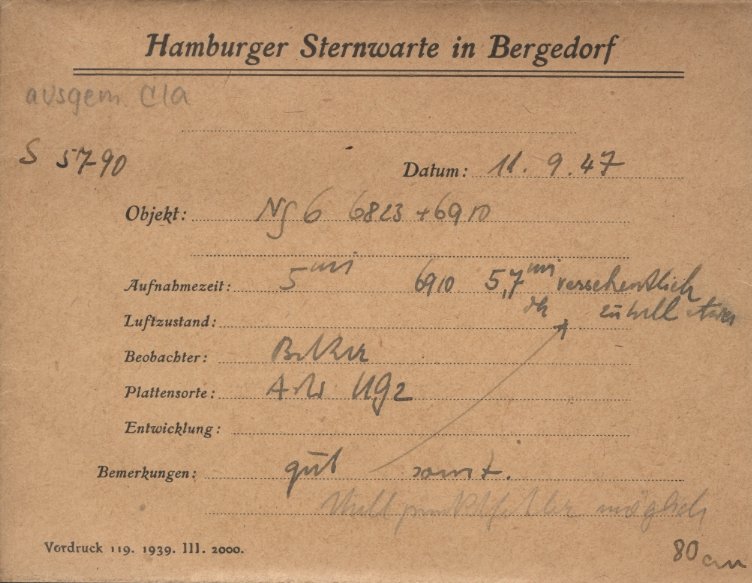 Hamburger Sternwarte in Bergedorf
ausgem. Cla
S 5790
Datum: 11. 9. 47
Objekt: NGC 6823 + 6910
Aufnahmezeit: 5 min 6910 5,7 min versehentlich
zu hell
Luftzustand:
Beobachter:
Plattensorte: UG2
Entwicklung:
Bemerkungen: gut sonst.
Nullpunktfehler möglich
Vordruck 119. 1939. III. 2000.
80 cm